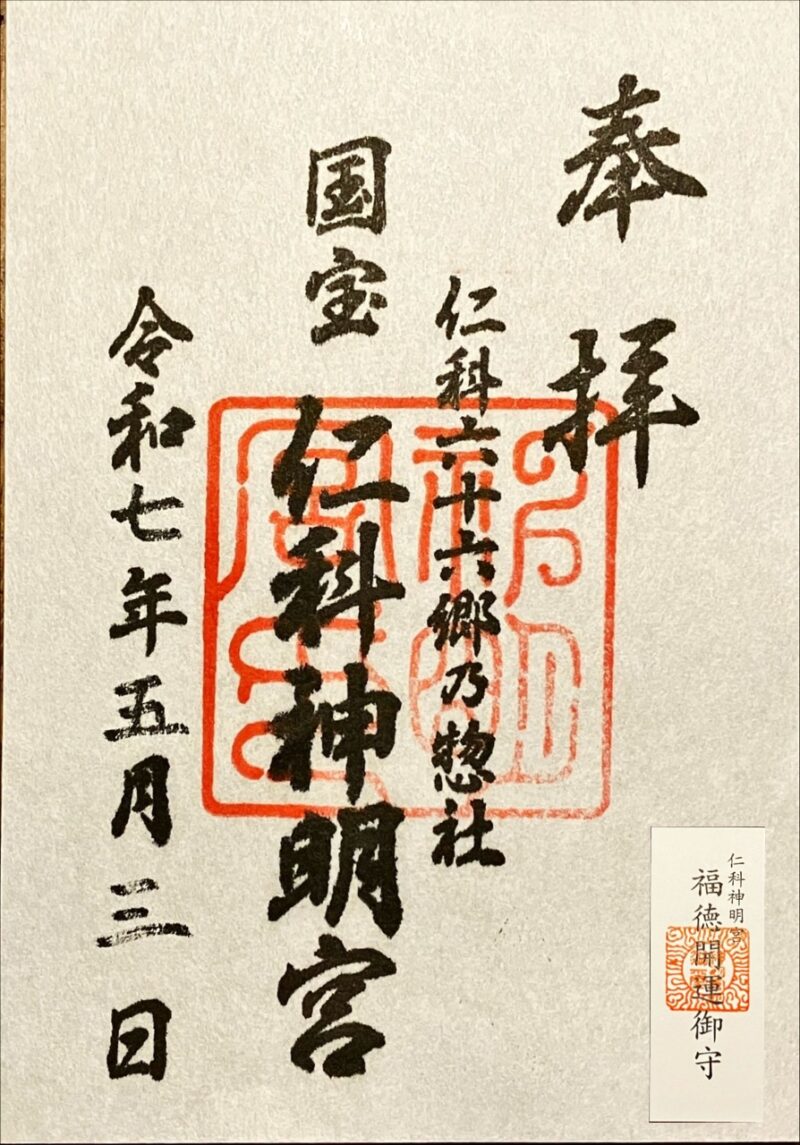 奉拝
仁科六十六郷乃惣社
国宝 仁科神明宮
令和七年五月三日
仁科神明宮
福徳開運御守